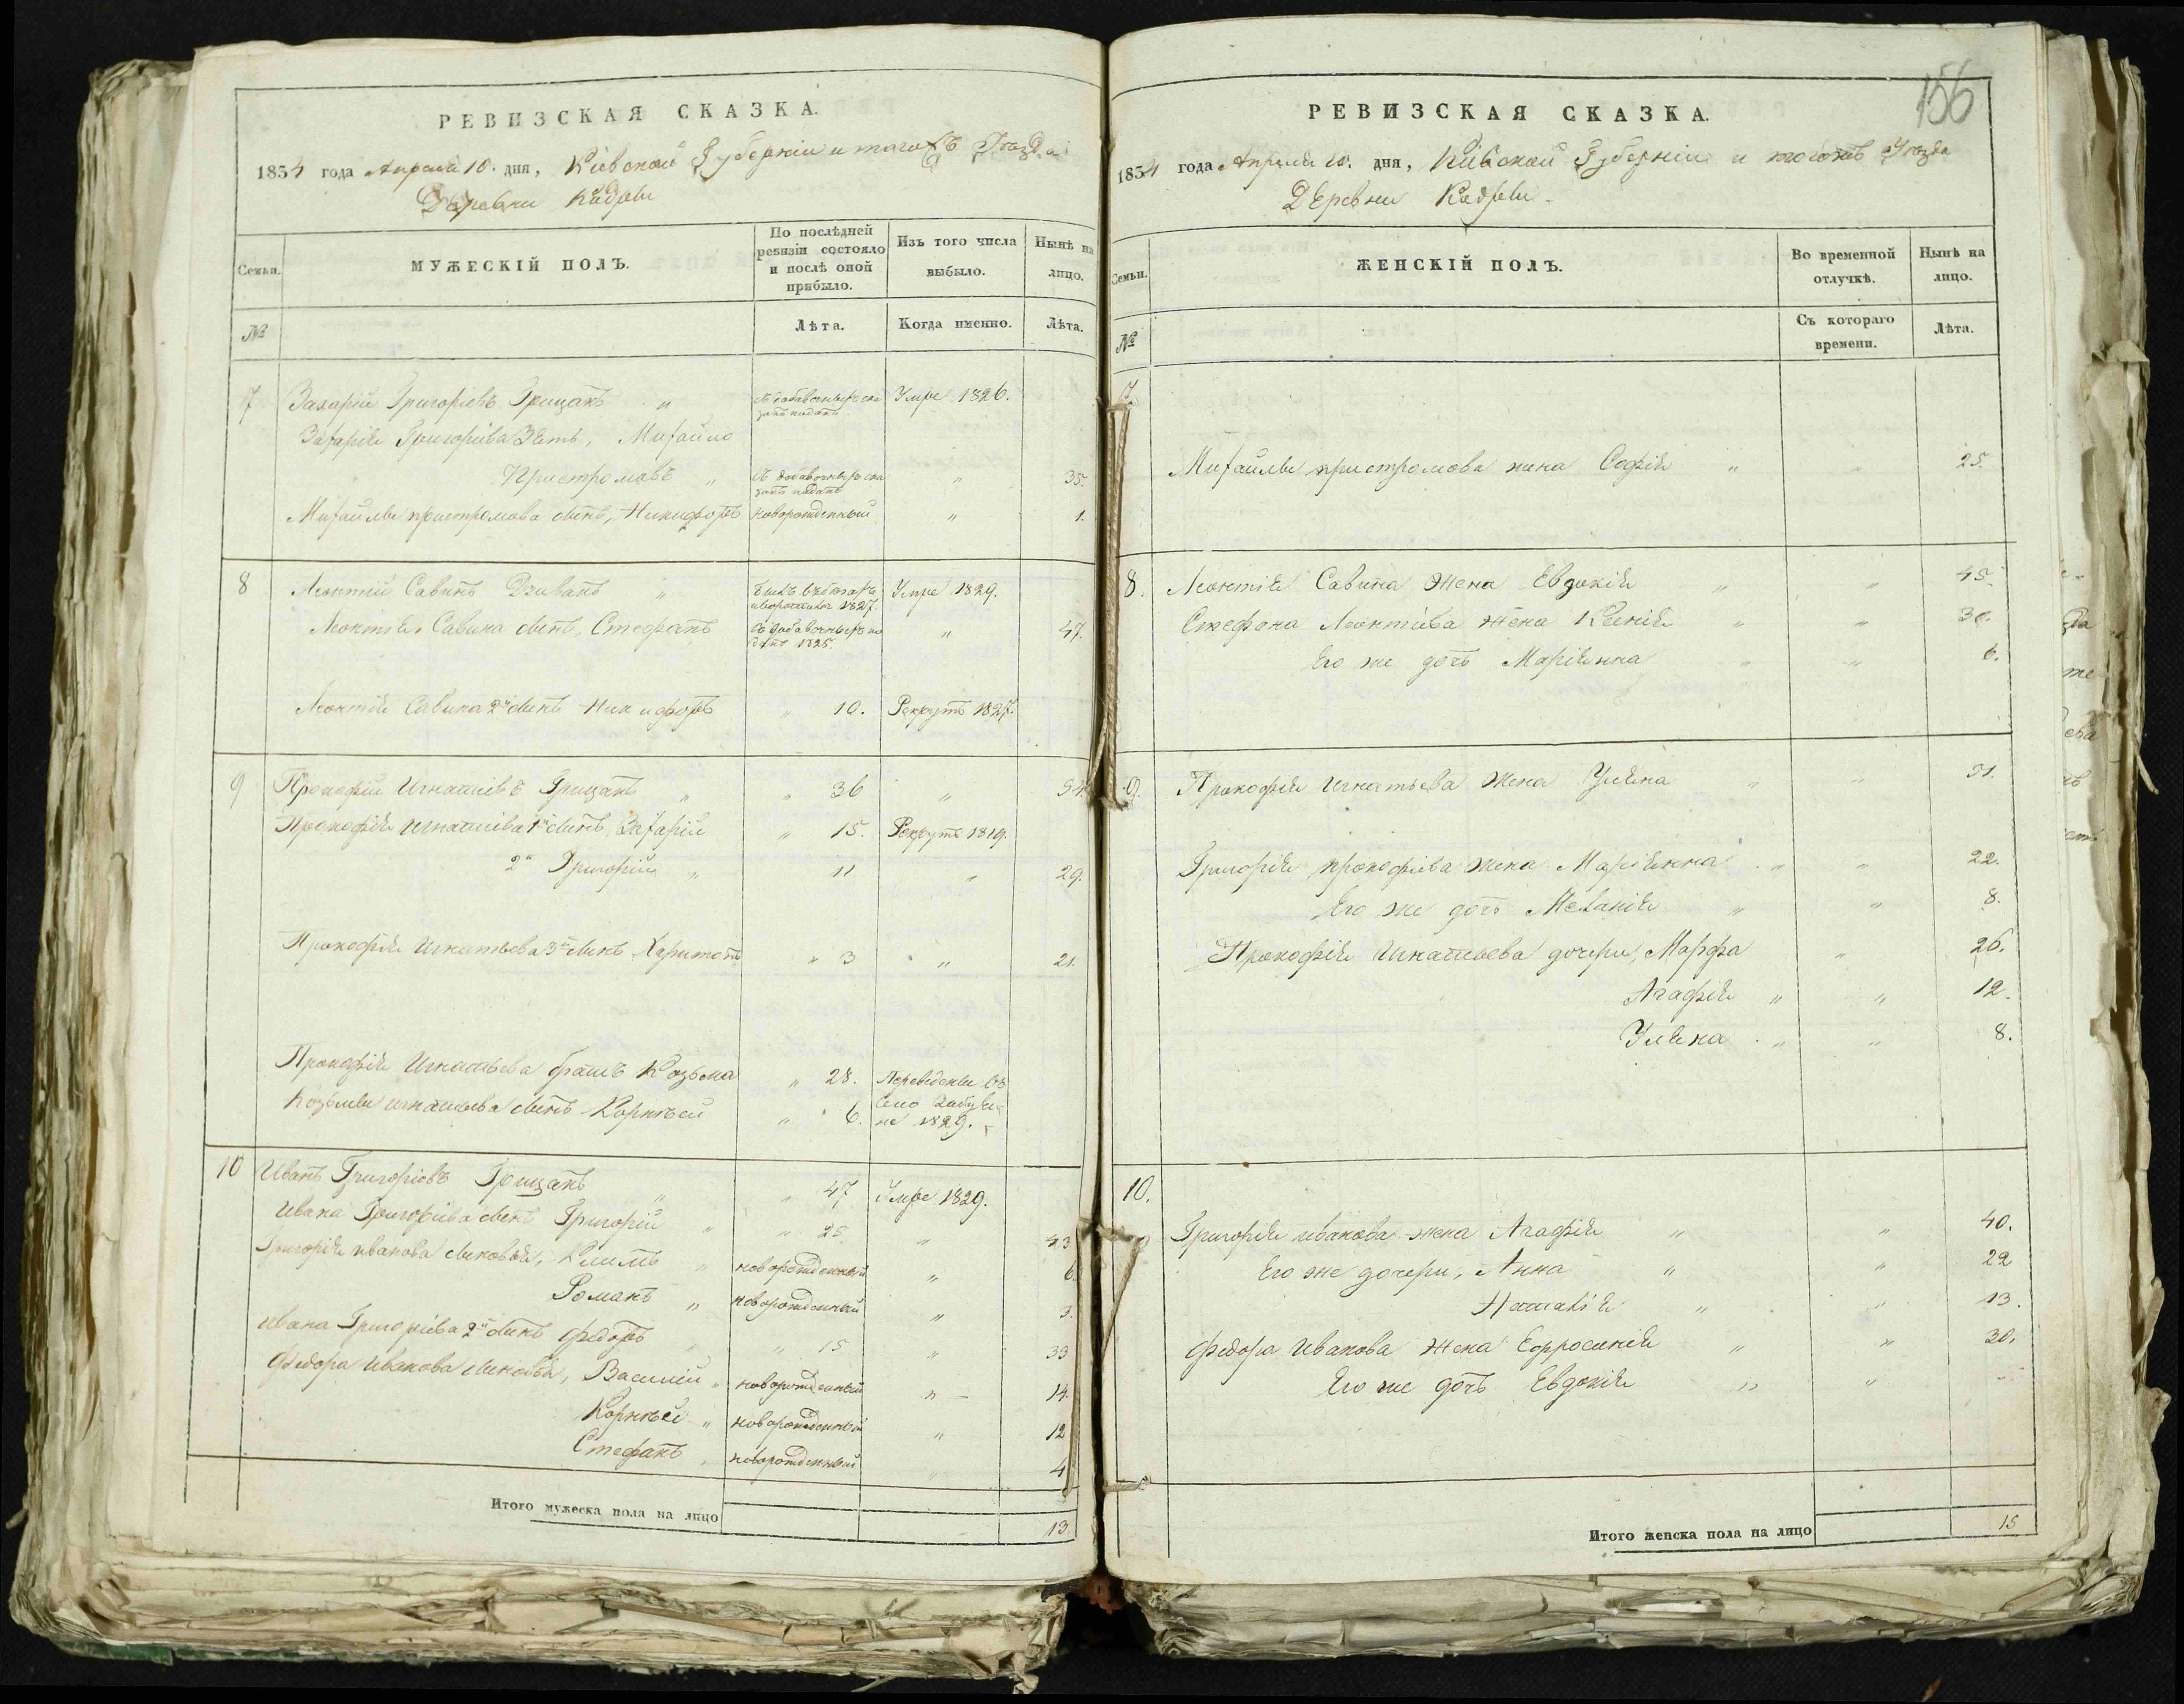 РЕВИЗСКАЯ СКАЗКА.
1834 года Апреля 10. дня, Кіевской Губерніи и того жъ Уезда
Деревни Кадры
Семьи.
МУЖЕСКІЙ ПОЛЪ.
По послѣдней ревизіи состояло и послѣ оной прибыло.
Изъ того числа выбыло.
Нынѣ на лицо.
№
Лѣта.
Когда именно.
Лѣта.
7 Захарій Григоріевъ Грицакъ " Умре 1826.
Захарія Григоріева Зять, Михайло
" Пристромовъ " " 35.
Михайлы пристромова сынъ, Никифоръ новорожденный " 1.
8 Леонтій Савинъ Дзиванъ " Умре 1829.
Леонтія Савина сынъ, Стефанъ " 47.
Леонтія Савина 2й сынъ Никифоръ " 10. Рекрутъ 1827.
9 Прокофій Игнатіевъ Грицакъ " " 36 " 54.
Прокофія Игнатіева 1й сынъ, Захарій " 15. Рекрутъ 1819.
2й Григорій " 11 " 29.
Прокофія Игнатьева 3й сынъ Харитонъ " 3 " 21.
Прокофія Игнатьева братъ Козьма " 28. Переведены въ
Козьмы игнатьева сынъ Корнѣй " 6. Село не 1829.
10 Иванъ Григоріовъ Грицакъ " " 47 Умре 1829.
Ивана Григоріева сынъ Григорій " " 25. " 43
Григорія иванова сыновья, Климъ " новорожденный " 6.
Романъ " новорожденный " 3.
Ивана Григоріева 2й сынъ Федоръ " " 15 " 33
Федора Иванова сыновья, Василій " новорожденный " 14.
Корнѣй " новорожденный " 12
Стефанъ " новорожденный " 4
Итого мужеска пола на лицо 13
156
РЕВИЗСКАЯ СКАЗКА.
1834 года Апреля 10. дня, Кіевской Губерніи и того жъ Уезда
Деревни Кадры
Семьи.
ЖЕНСКІЙ ПОЛЪ.
Во временной отлучкѣ.
Нынѣ на лицо.
№
Съ котораго времени.
Лѣта.
7.
Михайлы пристромова жена Софія " " 25.
8. Леонтія Савина жена Евдокія " " 45.
Стефана Леонтіева жена Ксенія " " 30.
Его же дочь Маріянна " " 6.
9. Прокофія Игнатьева жена Уляна " " 51.
Григорія прокофіева жена Маріянна " " 22.
Его же дочь Меланія " " 8.
Прокофія Игнатьева дочери, Марфа " 26.
Агафія " " 12.
Уляна " " 8.
10.
Григорія иванова жена Агафія " " 40.
Его же дочери, Анна " " 22
Наталія " " 13.
Федора Иванова жена Ефросинія " " 30.
Его же дочь Евдокія " "
Итого женска пола на лицо 15